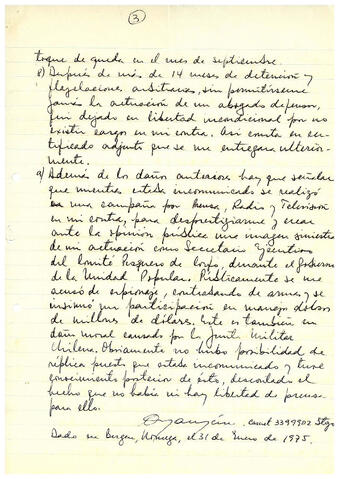 3
toque de queda en el mes de septiembre.
8) Después de más de 14 meses de detención y
flagelaciones arbitrarias, sin permitírseme
jamás la actuación de un abogado defensor,
fui dejado en libertad incondicional por no
existir cargos en mi contra. Así consta en cer-
tificado adjunto que se me entregara ulterior-
mente.
9) Además de los daños anteriores hay que señalar
que mientras estaba incomunicado se realizó
una campaña por Prensa, Radio y Televisión
en mi contra, para desprestigiarme y crear
ante la opinión pública una imagen siniestra
de mi actuación como Secretario Ejecutivo
del Comité Pesquero de Corfo, durante el Gobierno
de la Unidad Popular. Públicamente se me
acusó de espionaje, contrabando de armas, y se
insinuó mi participación en manejo doloso
de millones de dólares. Este es también un
daño moral causado por la Junta Militar
Chilena. Obviamente no hubo posibilidad de
réplica puesto que estaba incomunicado y tuve
conocimiento posterior de ésto, descontado el
hecho que no había ni hay libertad de prensa
para ello.
carnet 3399902 Stgo
Dado en Bergen, Noruega, el 31 de Enero de 1975.